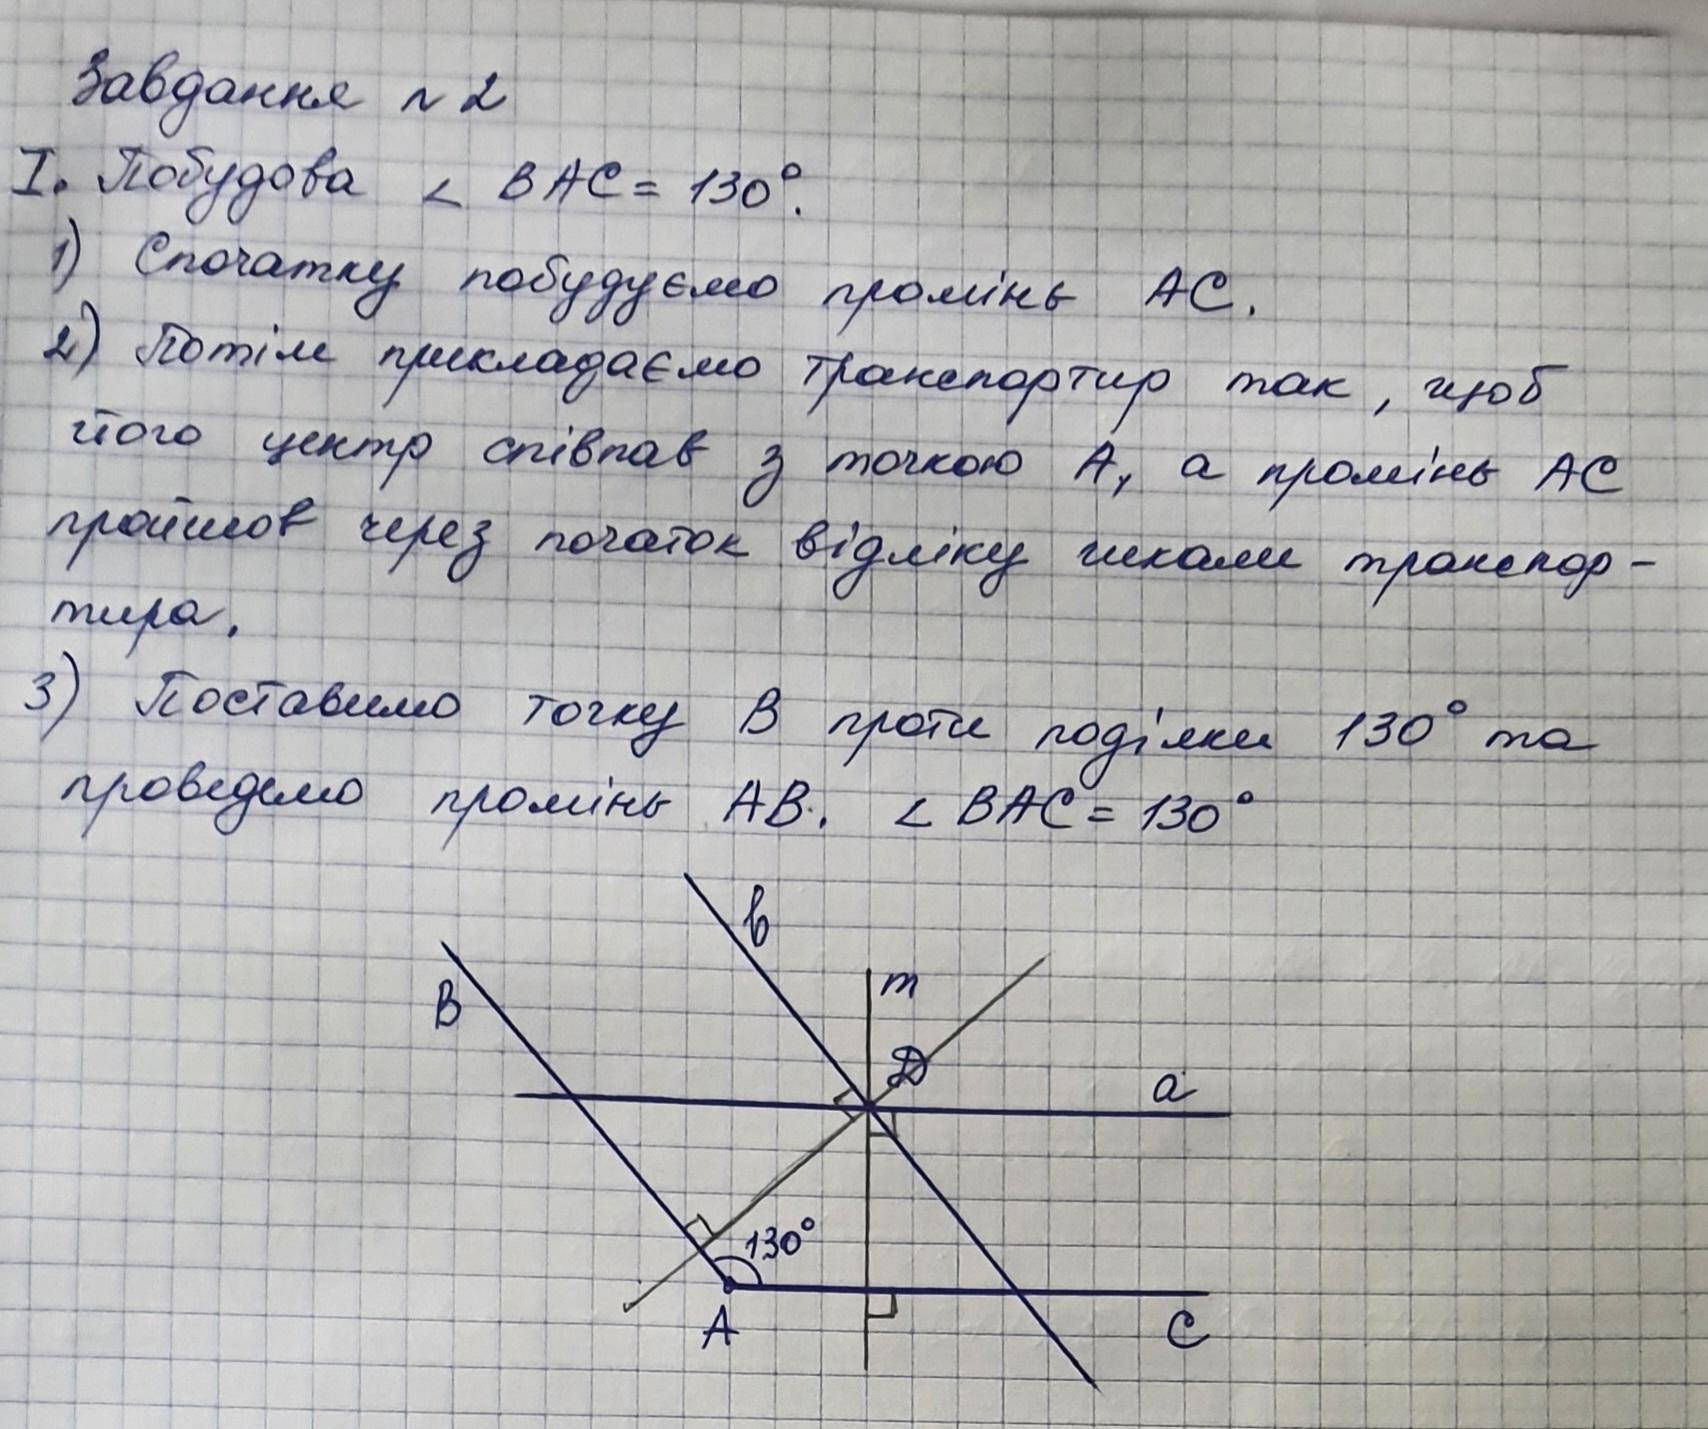 Завдання №2
I. Побудова ∠ BAC = 130°.
1) Спочатку побудуємо промінь AC.
2) Потім прикладаємо транспортир так, щоб
його центр співпав з точкою A, а промінь AC
пройшов через початок відліку шкали транспор-
тира.
3) Поставимо точку B проти поділки 130° та
проведемо промінь AB. ∠ BAC = 130°
b
B
m
D
a
130°
A
C